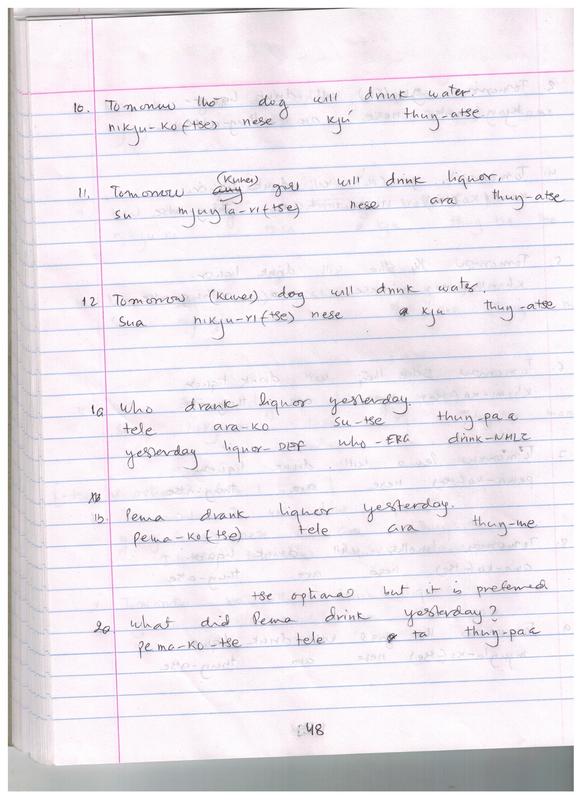 10. Tomorrow the dog will drink water.
nikju-ko(tse) nese kju thuŋ-atse
11. Tomorrow any (Kunes) girl will drink liquor.
su mjuŋla-ri(tse) nese ara thuŋ-atse
12 Tomorrow (Kunes) dog will drink water.
sua nikju-ri(tse) nese kju thuŋ-atse
1a Who drank liquor yesterday.
tele ara-ko su-tse thuŋ-pa a
yesterday liquor-DEF who-ERG drink-NMLZ
1b Pema drank liquor yesterday.
pema-ko(tse) tele ara thuŋ-me
tse optional but it is preferred
2a What did Pema drink yesterday?
pema-ko-tse tele ta thuŋ-pa a
48